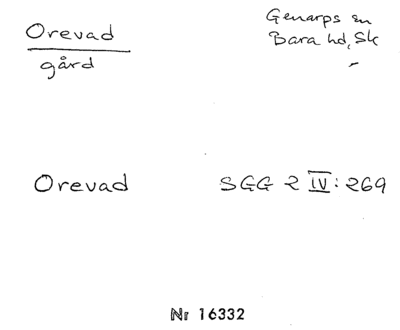 Orevad
gård
Genarps sn
Bara hd, Sk
Orevad
SGG 2 IV: 269
Nr 16332